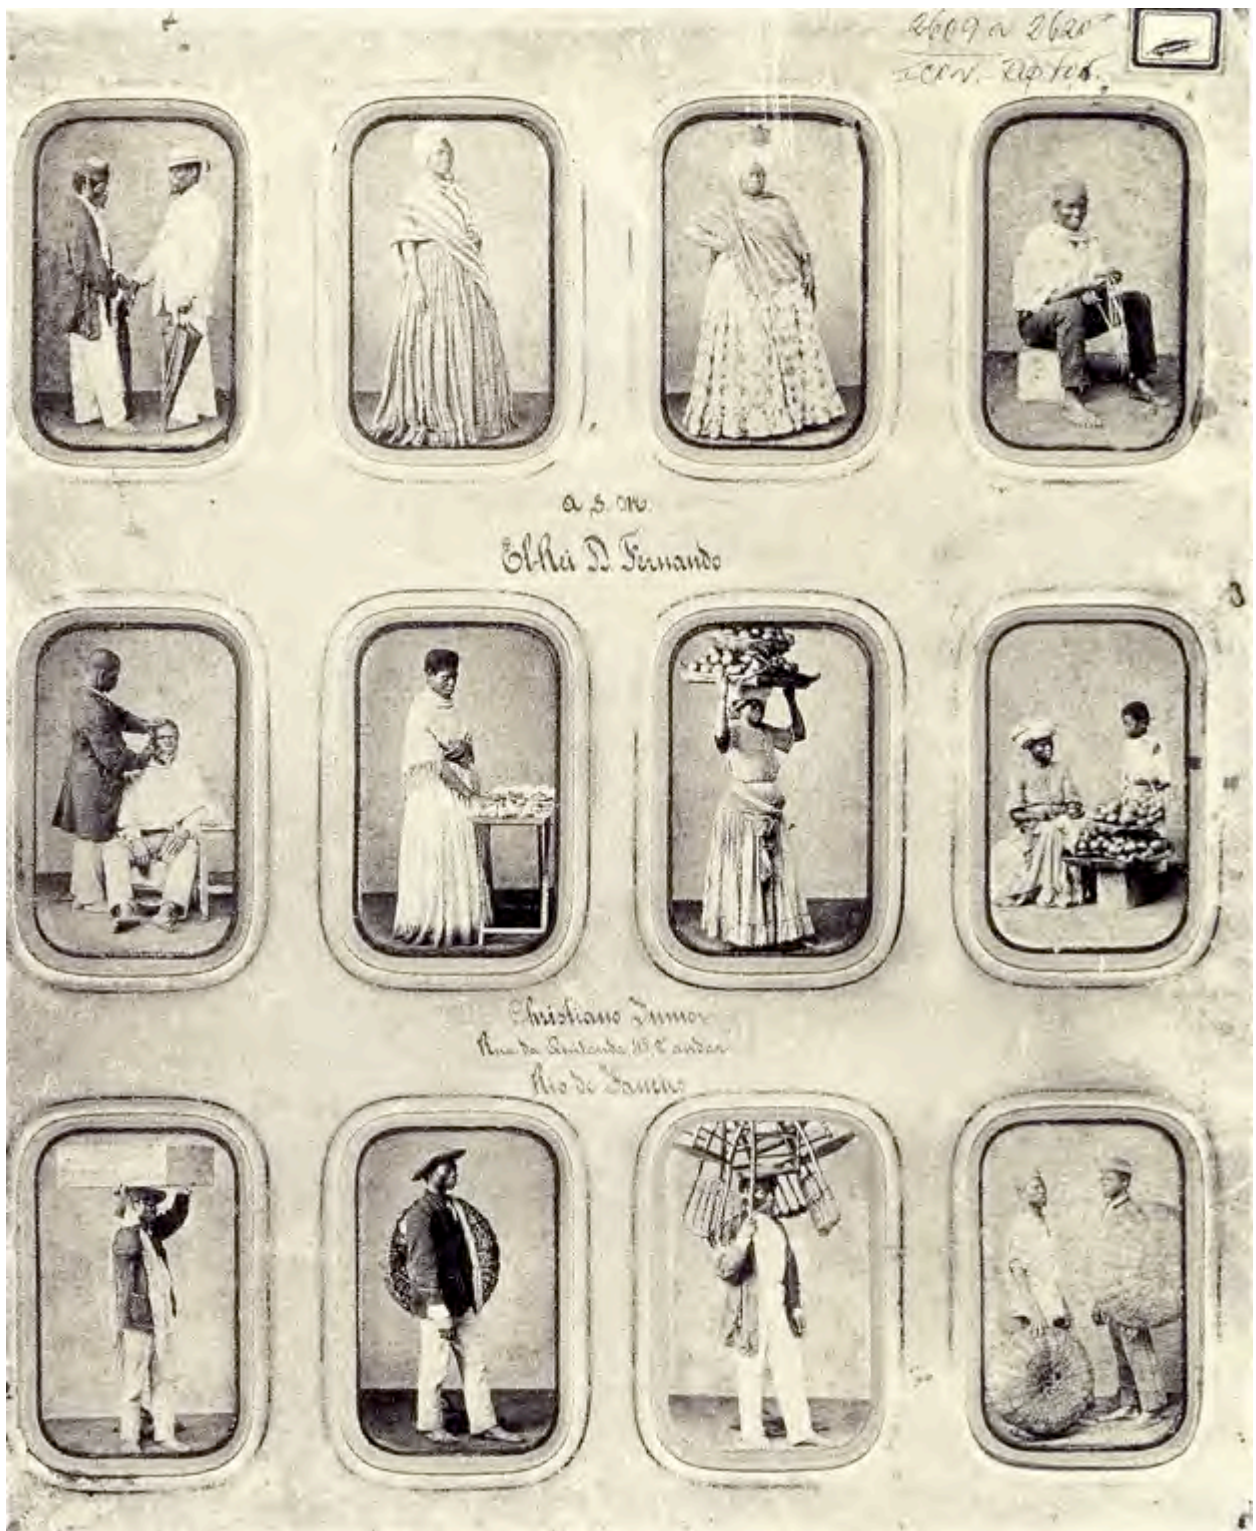 2609 a 2620
A S. M.
El-Rei D. Fernando
Christiano Junior
Rua da Quitanda 45, 2º andar
Rio de Janeiro